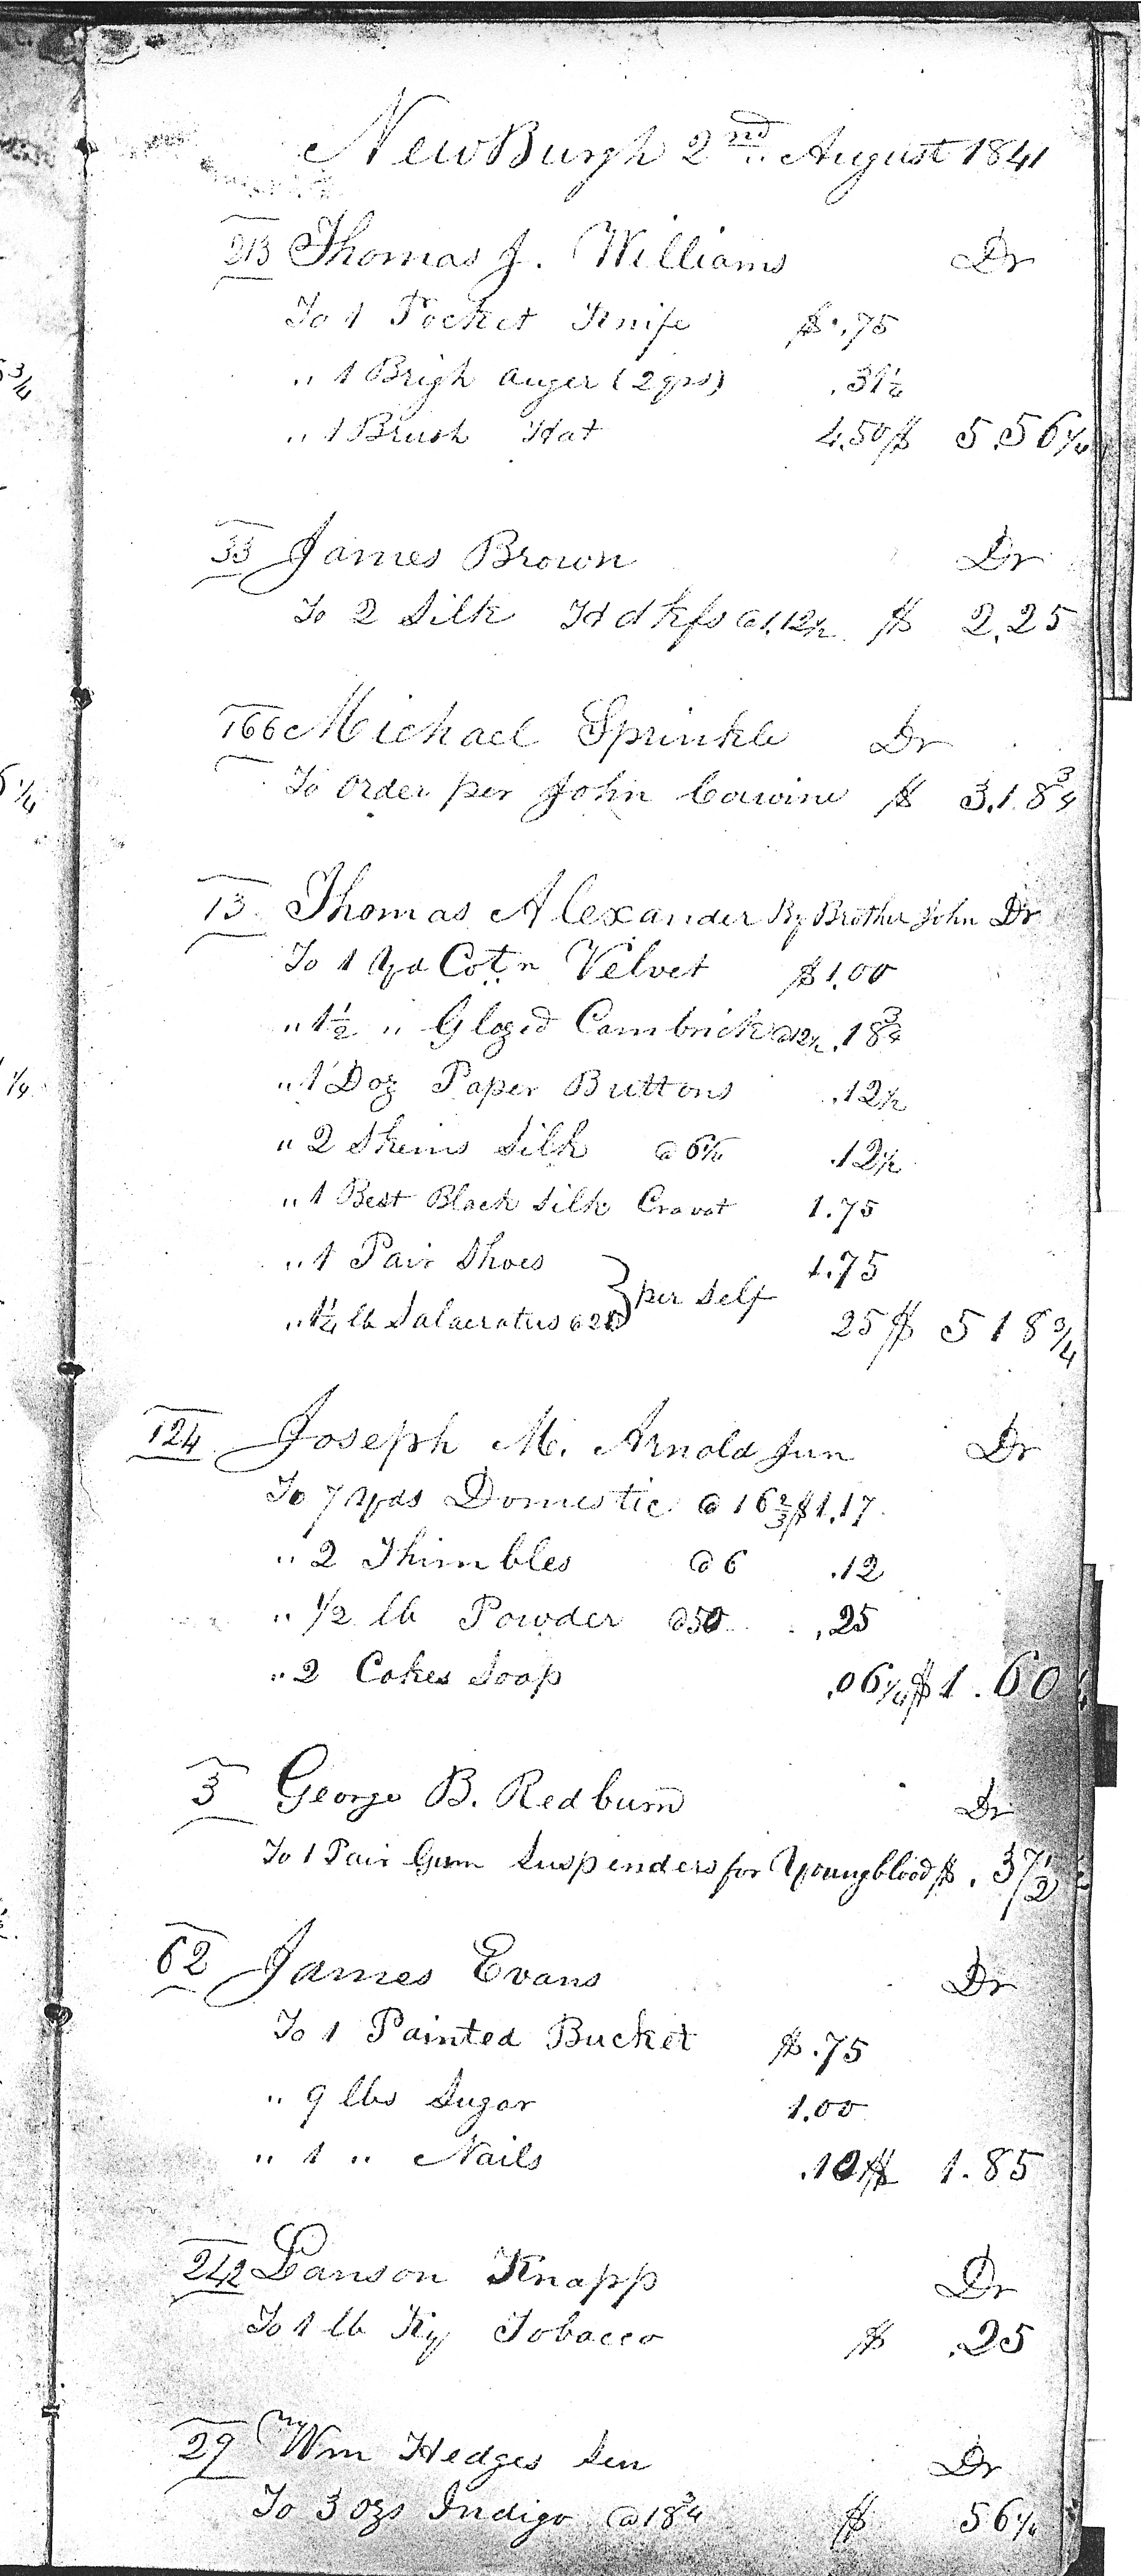 3/4
1/4
1/4
NewBurgh 2nd August 1841
213 Thomas J. Williams Dr
To 1 Pocket Knife $.75
" 1 Brigh Auger (2 qrs) .31 1/4
" 1 Brush Hat 4.50 $ 5.56 1/4
33 James Brown Dr
To 2 Silk Hdkfs @ 1.12 1/2 $ 2.25
166 Michael Sprinkle Dr
To Order per John Cawine $ 3.18 3/4
13 Thomas Alexander By Brother John Dr
To 1 Yd Cotn Velvet $1.00
" 1 1/2 " Glozed Cambrick @ 12 1/2 .18 3/4
" 1 Doz Paper Buttons .12 1/2
" 2 Skeins Silk @ 6 1/4 .12 1/2
" 1 Best Black Silk Cravat 1.75
" 1 Pair Shoes } per Self 1.75
" 1 1/4 lb Salaeratus @ 20 25 $ 5 18 3/4
124 Joseph M. Arnold Jun Dr
To 7 Yds Domestic @ 16 2/3 $1.17
" 2 Thimbles @ 6 .12
" 1/2 lb Powder @ 50 .25
" 2 Cakes Soap .06 1/4 $ 1.60
3 George B. Redburn Dr
To 1 Pair Gum Suspenders for Youngblood $ .37 1/2
62 James Evans Dr
To 1 Painted Bucket $.75
" 9 lbs Sugar 1.00
" 1 " Nails .10 $ 1.85
242 Lanson Knapp Dr
To 1 lb Ky Tobacco $ .25
29 Wm Hedges Sen Dr
To 3 ozs Indigo @ 18 3/4 $ 56 1/4